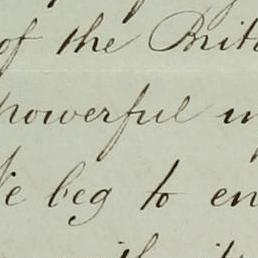 of the Brit
powerful
We beg to en